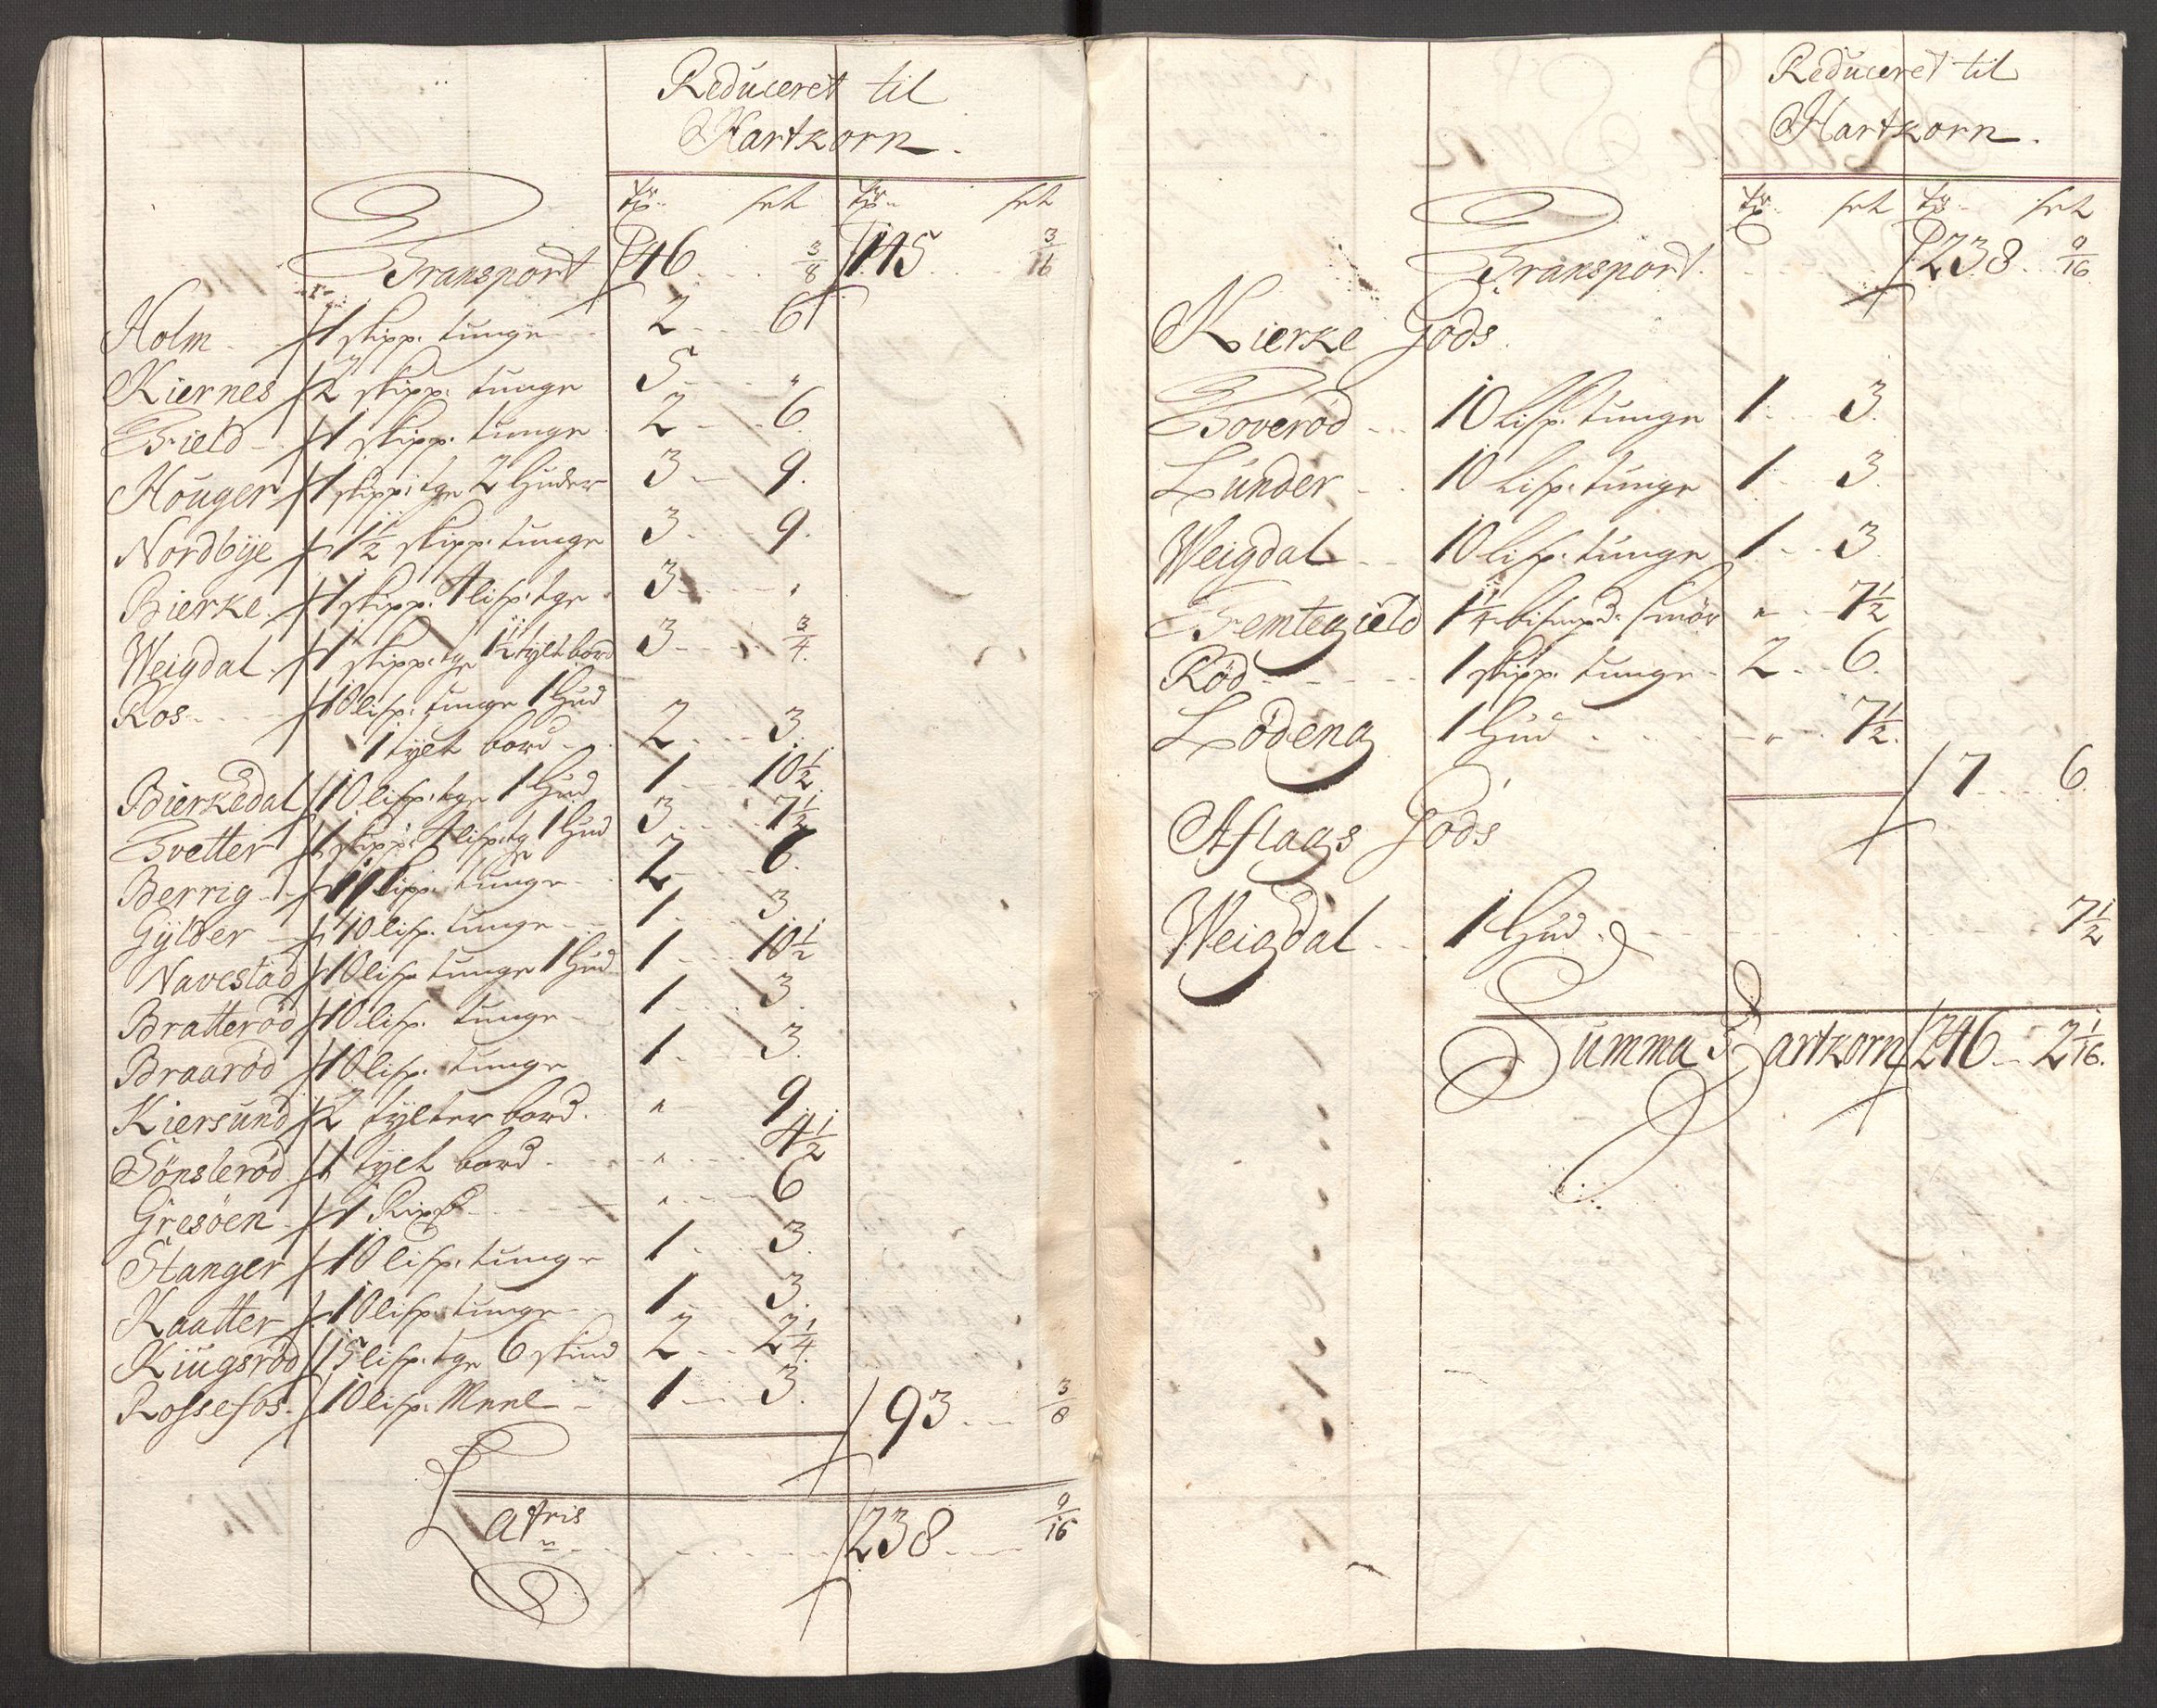 Reduceret til
Hartkorn.
Transport 46 3/8 145 3/16
Holm 1 skipp. tunge 2 6
Kiernes 2 skipp. tunge 5 "
Field 1 skipp. tunge 2 6.
Houger 1 skipp: tge 2 huder 3 9.
Nordbÿe 1 1/2 skipp. tunge 3 9.
Bierke 1 skipp. 4 lisp. tge 3 "
Weigdal 1 skipp: tge 1 1/2 tylt bord 3 3/4.
Ros 10 lisp. tunge 1 hud
1 tylt bord 2 3.
Bierkedal 10 lisp: tge 1 hud 1 10 1/2
Tvetter 1 skipp: 4 lisp: tge 1 hud 3 7 1/2
Berrig 1 skipp. tunge 2 6.
Gÿlder 10 lisp. tunge 1 3
Navestad 10 lisp tunge 1 hud 1 10 1/2
Bratterød 10 lisp. tunge 1 3.
Braarød 10 lisp. tunge 1 3.
Kiersund 2 tÿlter bord. " 9
Sönslerød 1 tÿlt bord. " 4 1/2
Gresöen 1 " 6
Stanger 10 lisp. tunge 1 3.
Kaatter 10 lisp. tunge 1 3.
Kiugsrød 15 lisp. tge 6 skind 2 2 1/4
Rossefos. 10 lisp. Meel 1 3. 93 3/8
Latris 238 9/16
Reduceret til
Hartkorn.
Transport. 238 9/16
Kierke Gods.
Toverød 10 Lisp. tunge 1 3.
Lunder 10 Lisp. tunge 1 3.
Weigdal 10 Lisp. tunge 1 3.
Femtegield 1 1/4 bismpd. smör " 7 1/2
Rød 1 skipp. tunge 2 6.
Lödeng 1 hud " 7 1/2.
7 6.
Aflags Gods
Weigdal 1 hud. 7 1/2
Summa Hartkorn 246 2 1/16.